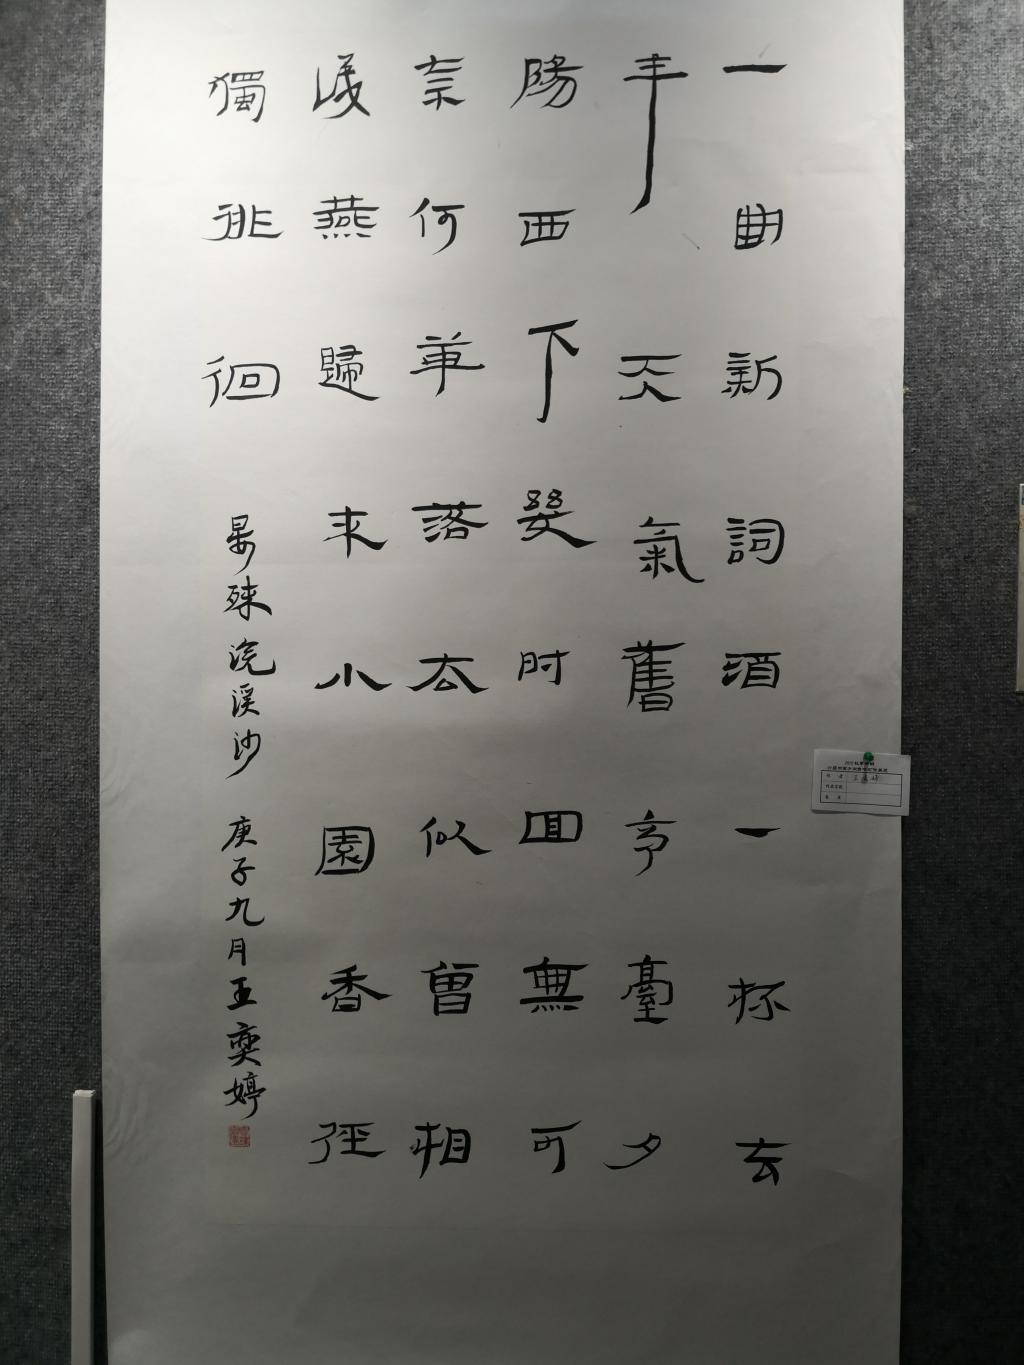 一曲新詞酒一杯去
年天氣舊亭臺夕
陽西下幾時回無可
奈何華落去似曾相
識燕歸來小園香徑
獨徘徊
晏殊浣溪沙 庚子九月王奕婷